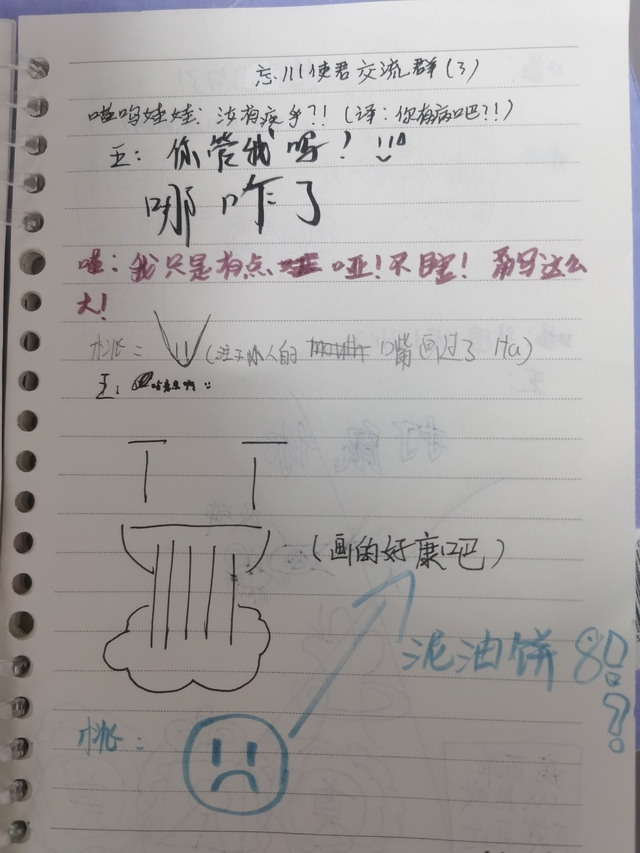 忘川使君交流群(3)
喵呜娃娃：汝有疾乎?!(译：你有病吧?!)
王：你管我嘎！
哪咋了
喵：我只是有点 哑！不瞎！甭写这么
大！
桃：(注：小人的 嘴画过了 Ha)
王：
(画的好康吧)
泥油饼80.?
桃：